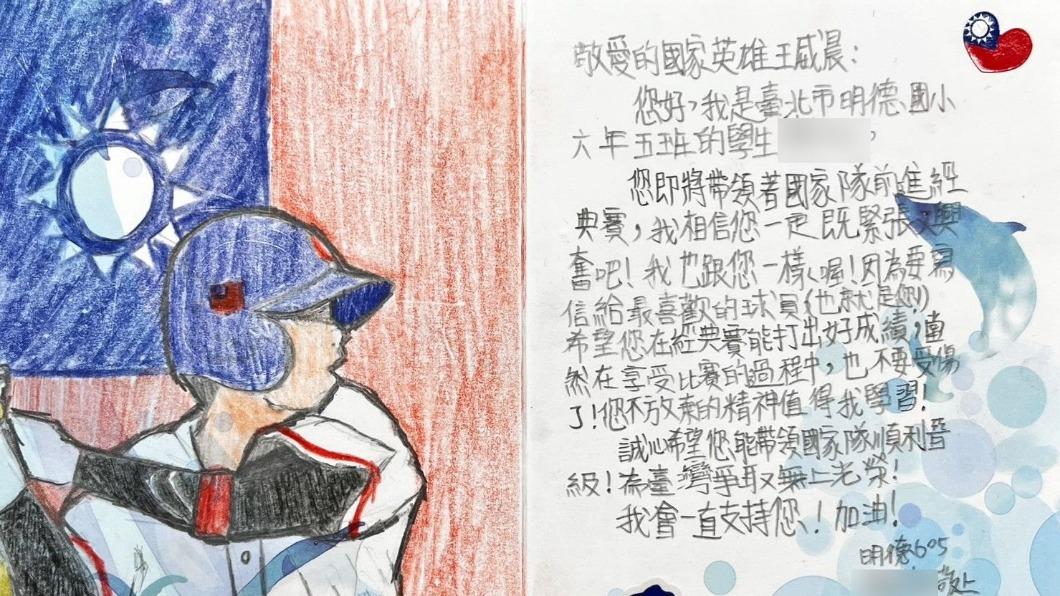 敬愛的國家英雄王威晨：
您好，我是臺北市明德國小
六年五班的學生
您即將帶領著國家隊前進經
典賽，我相信您一定既緊張又興
奮吧！我也跟您一樣喔！因為要寫
信給最喜歡的球員(也就是您!)
希望您在經典賽能打出好成績，當
然在享受比賽的過程中，也不要受傷
了！您不放棄的精神值得我學習！
誠心希望您能帶領國家隊順利晉
級！為臺灣爭取無上光榮！
我會一直支持您！加油！
明德605
敬上